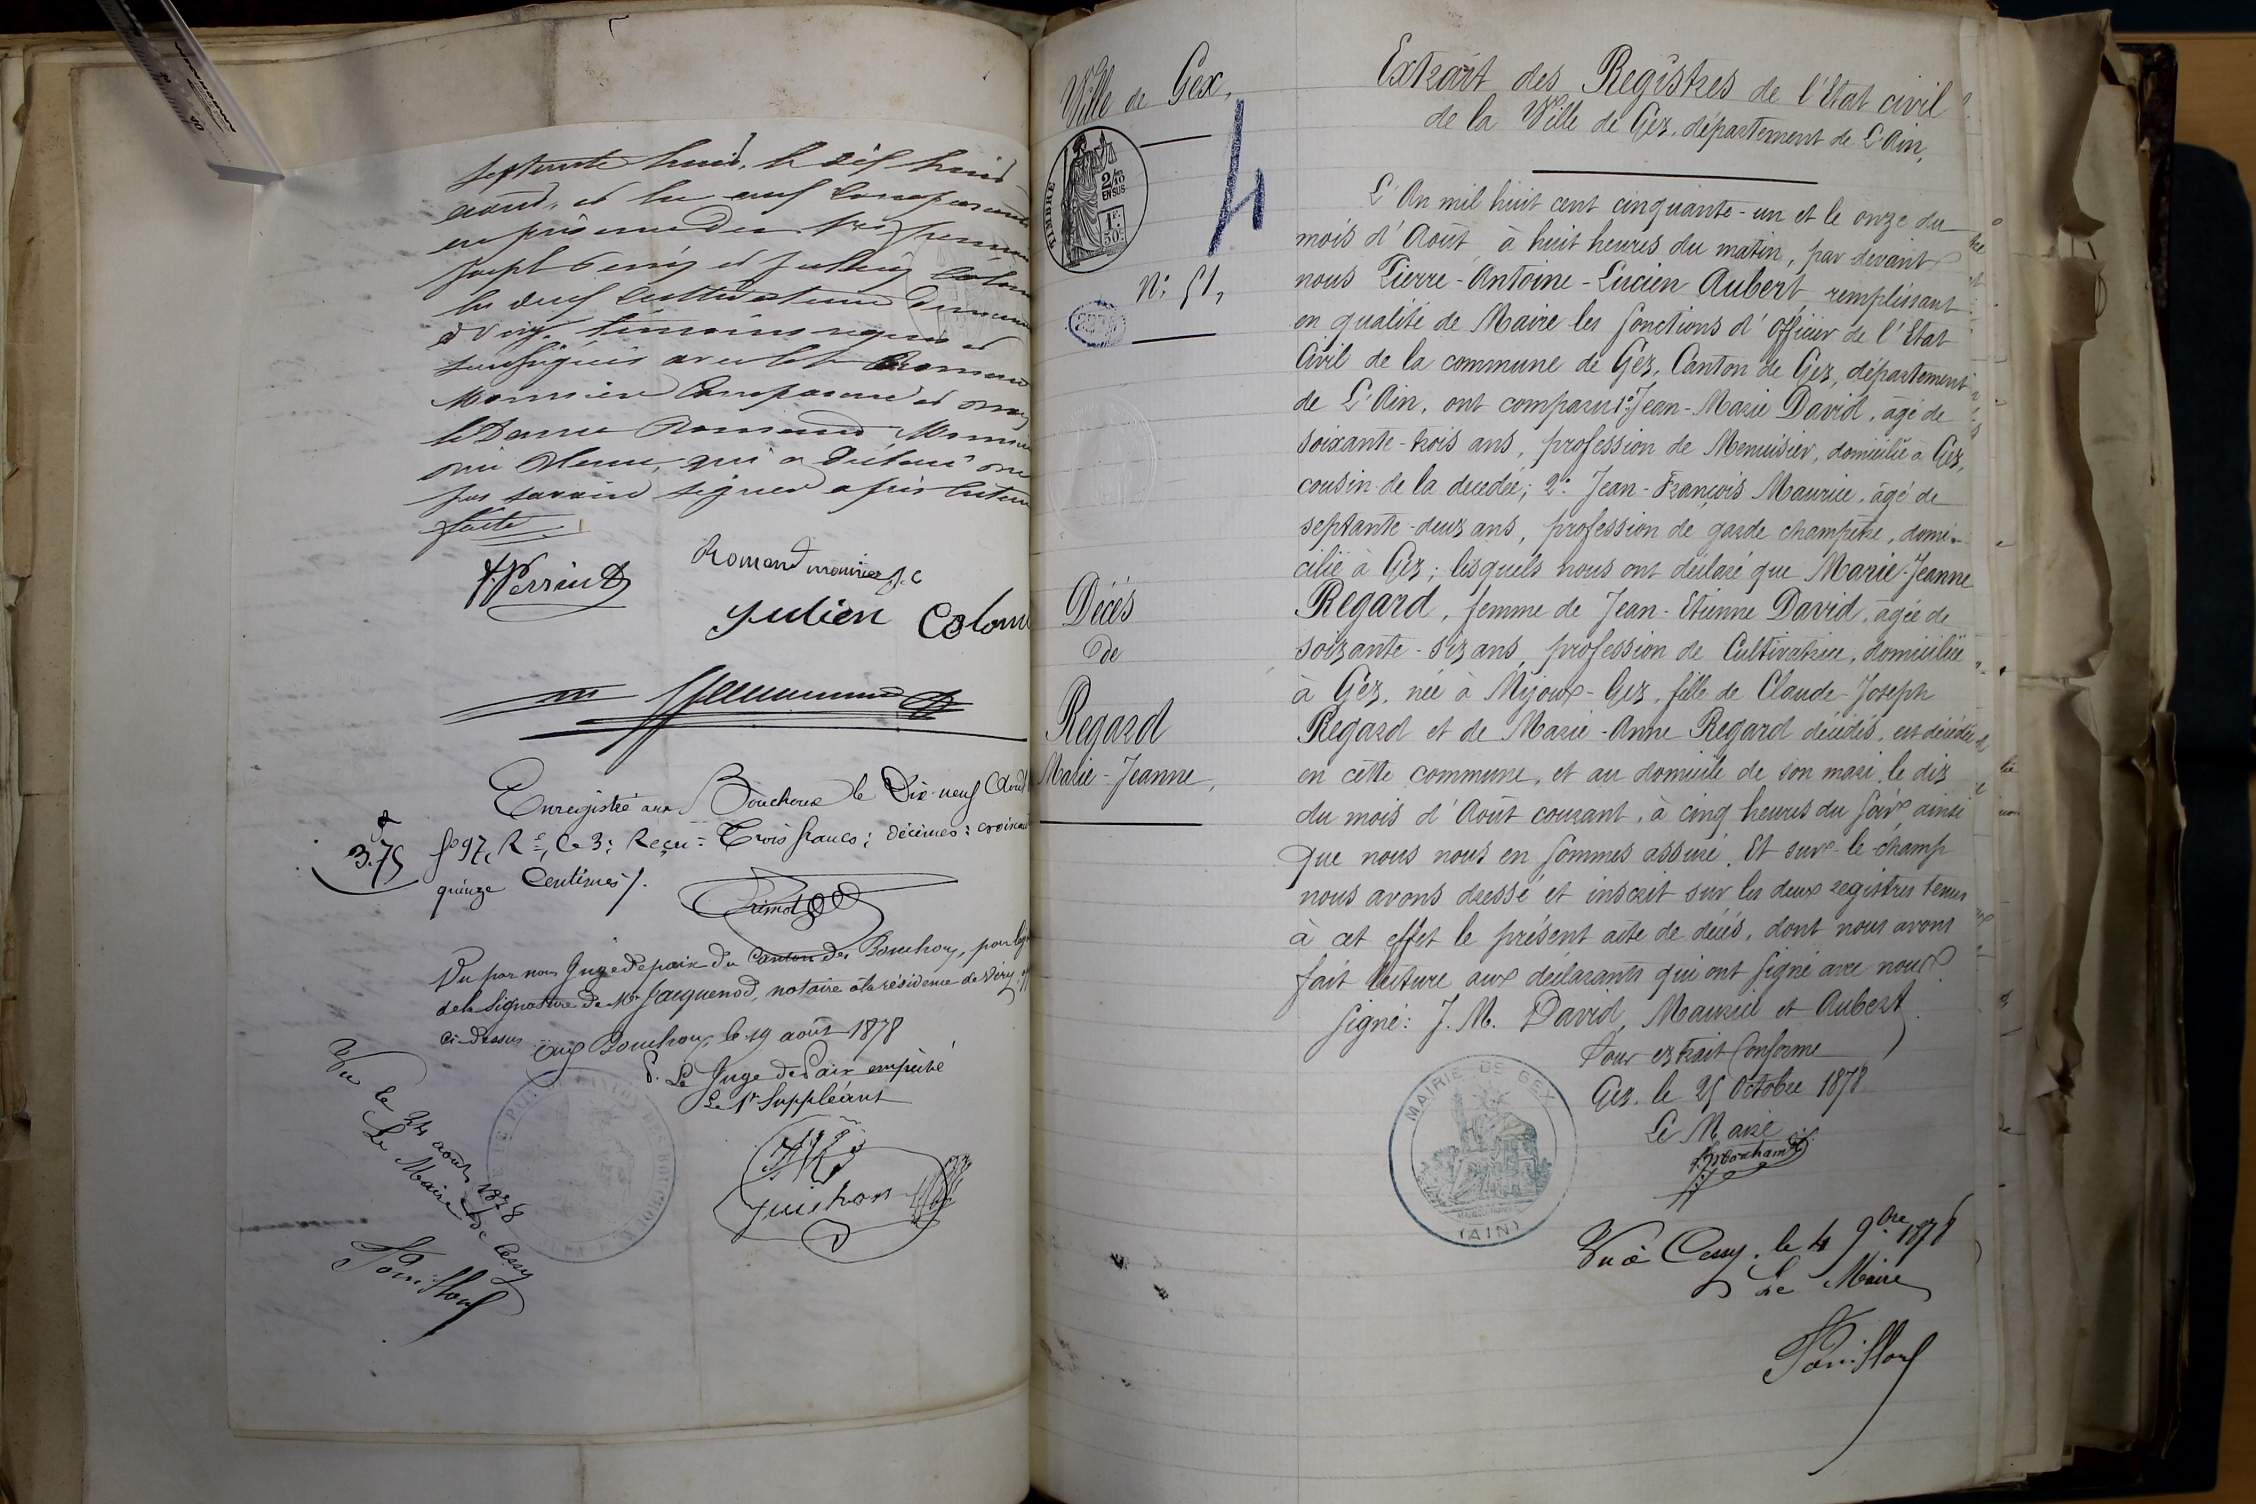 septante huit, le dix huit
août, et lu aux comparants
en présence de
Joseph et Julien Colom
les deux cultivateurs demeurant
à Viry, témoins requis et
soussignés avec le Sr Romand
Monnier comparant et non
la Dame Romand Monnier
qui a déclaré ne
pas savoir signer après lecture
faite.
Perrin
Romand monnier J. C
Julien Colom
Enregistré aux Bouchoux le Dix-neuf Août
3.75
fo 97, Ro, C. 3; Reçu = Trois francs; décimes: soixante
quinze Centimes /.
Vu par nous Juge de paix du canton des Bouchoux, pour lég
de la signature de Mr Jacquenod, notaire à la résidence de Viry,
ci-dessus
aux Bouchoux, le 19 août 1878
P. Le Juge de Paix empêché
Le 1r Suppléant
Guichon
Vu le 24 août 1878
Le Maire de Cessy
Ville de Gex,
TIMBRE
2/10
EN SUS
1F.
50c.
4
No 51,
Décès
de
Regard
Marie-Jeanne,
Extrait des Registres de l'Etat civil
de la Ville de Gex, département de L'Ain,
L'An mil huit cent cinquante-un et le onze du
mois d'Août à huit heures du matin, par devant
nous Pierre-Antoine-Lucien Aubert remplissant
en qualité de Maire les fonctions d'officier de l'Etat
Civil de la commune de Gex, Canton de Gex, département
de L'Ain, ont comparu 1o Jean-Marie David, âgé de
soixante-trois ans, profession de Menuisier, domicilié à Gex,
cousin de la décédée; 2o Jean-François Maurice, âgé de
septante-deux ans, profession de garde champêtre, domi-
cilié à Gex; lesquels nous ont déclaré que Marie-Jeanne
Regard, femme de Jean-Etienne David, âgée de
soixante-six ans, profession de Cultivatrice, domiciliée
à Gex, née à Mijoux-Gex, fille de Claude-Joseph
Regard et de Marie-Anne Regard décédés, est décédée
en cette commune, et au domicile de son mari, le dix
du mois d'Août courant, à cinq heures du soir ainsi
que nous nous en sommes assuré. Et sur-le-champ
nous avons dressé et inscrit sur les deux registres tenus
à cet effet le présent acte de décès, dont nous avons
fait lecture aux déclarants qui ont signé avec nous
signé: J. M. David, Maurice et Aubert
Pour extrait Conforme
Gex, le 25 Octobre 1878
Le Maire
MAIRIE DE GEX
(AIN)
Vu à Cessy, le 4 9bre 1878
Le Maire